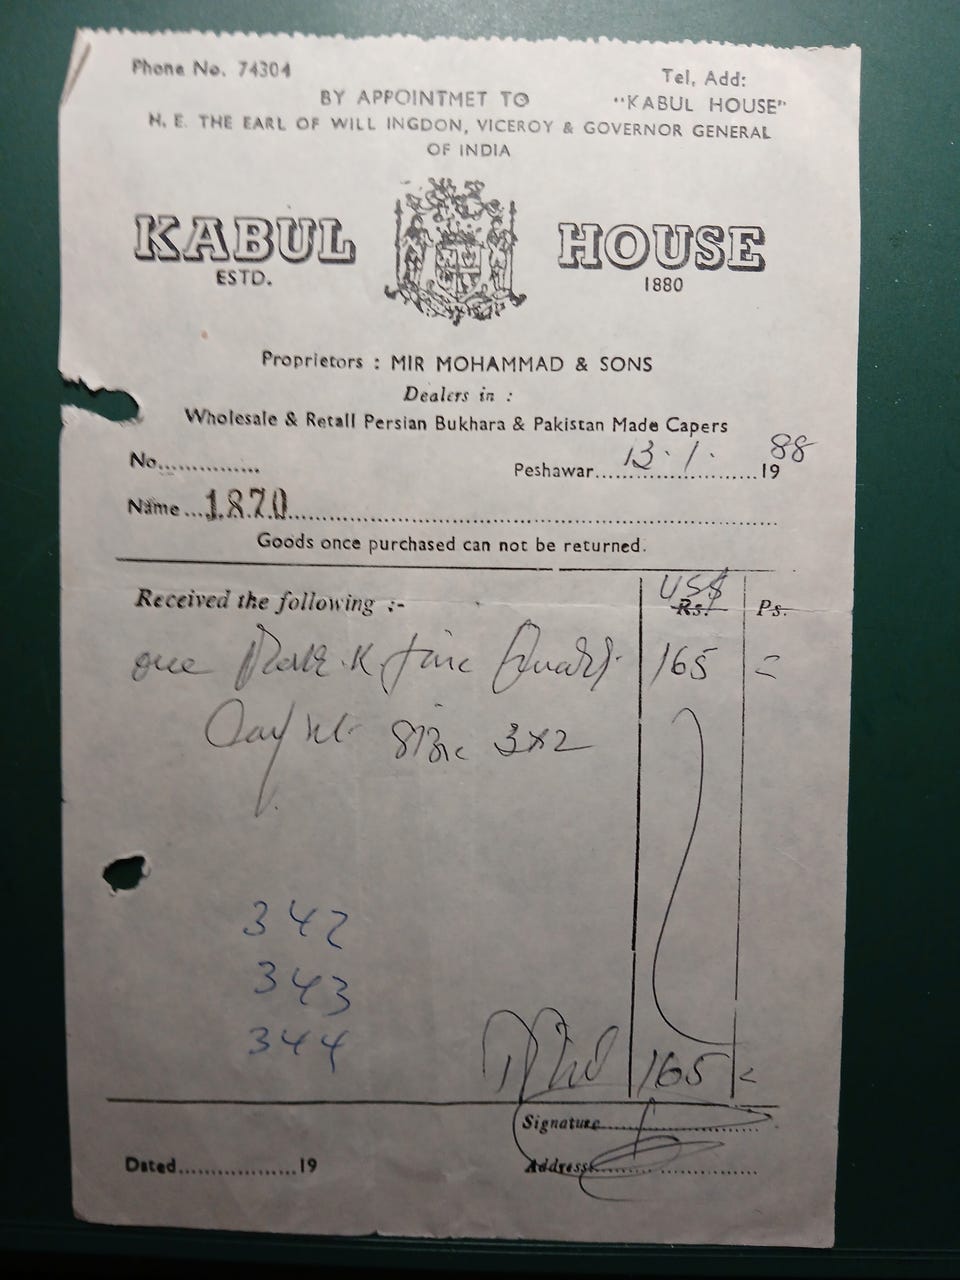 Phone No. 74304
Tel, Add:
"KABUL HOUSE"
BY APPOINTMET TO
H. E. THE EARL OF WILL INGDON, VICEROY & GOVERNOR GENERAL
OF INDIA
KABUL HOUSE
ESTD. 1880
Proprietors : MIR MOHAMMAD & SONS
Dealers in :
Wholesale & Retall Persian Bukhara & Pakistan Made Capers
No...............
Peshawar 13.1. 19 88
Name 1870
Goods once purchased can not be returned.
US$
Received the following :- Rs. Ps.
one fine 165 =
size 3x2
342
343
344
165 =
Signature
Dated..................19
Address